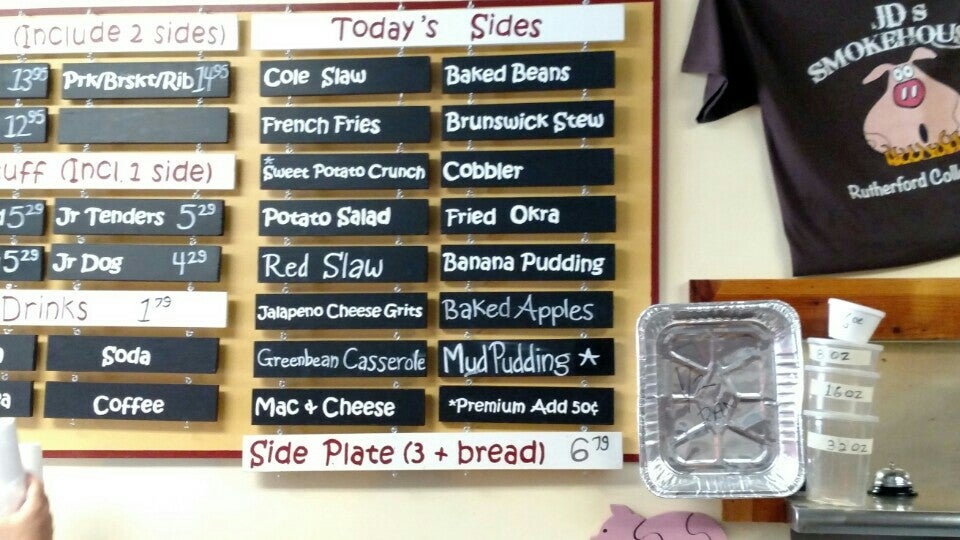 (Include 2 sides)
13 95 Prk/Brskt/Rib 14 95
12 95
uff (Incl. 1 side)
5 29 Jr Tenders 5 29
5 29 Jr Dog 4 29
Drinks 1 79
Soda
Coffee
Today's Sides
Cole Slaw Baked Beans
French Fries Brunswick Stew
*Sweet Potato Crunch Cobbler
Potato Salad Fried Okra
Red Slaw Banana Pudding
Jalapeno Cheese Grits Baked Apples
Greenbean Casserole Mud Pudding *
Mac & Cheese *Premium Add 50¢
Side Plate (3 + bread) 6 79
JD's
SMOKEHOUS
Rutherford Colle
8 OZ
16 OZ
32 OZ
PAN